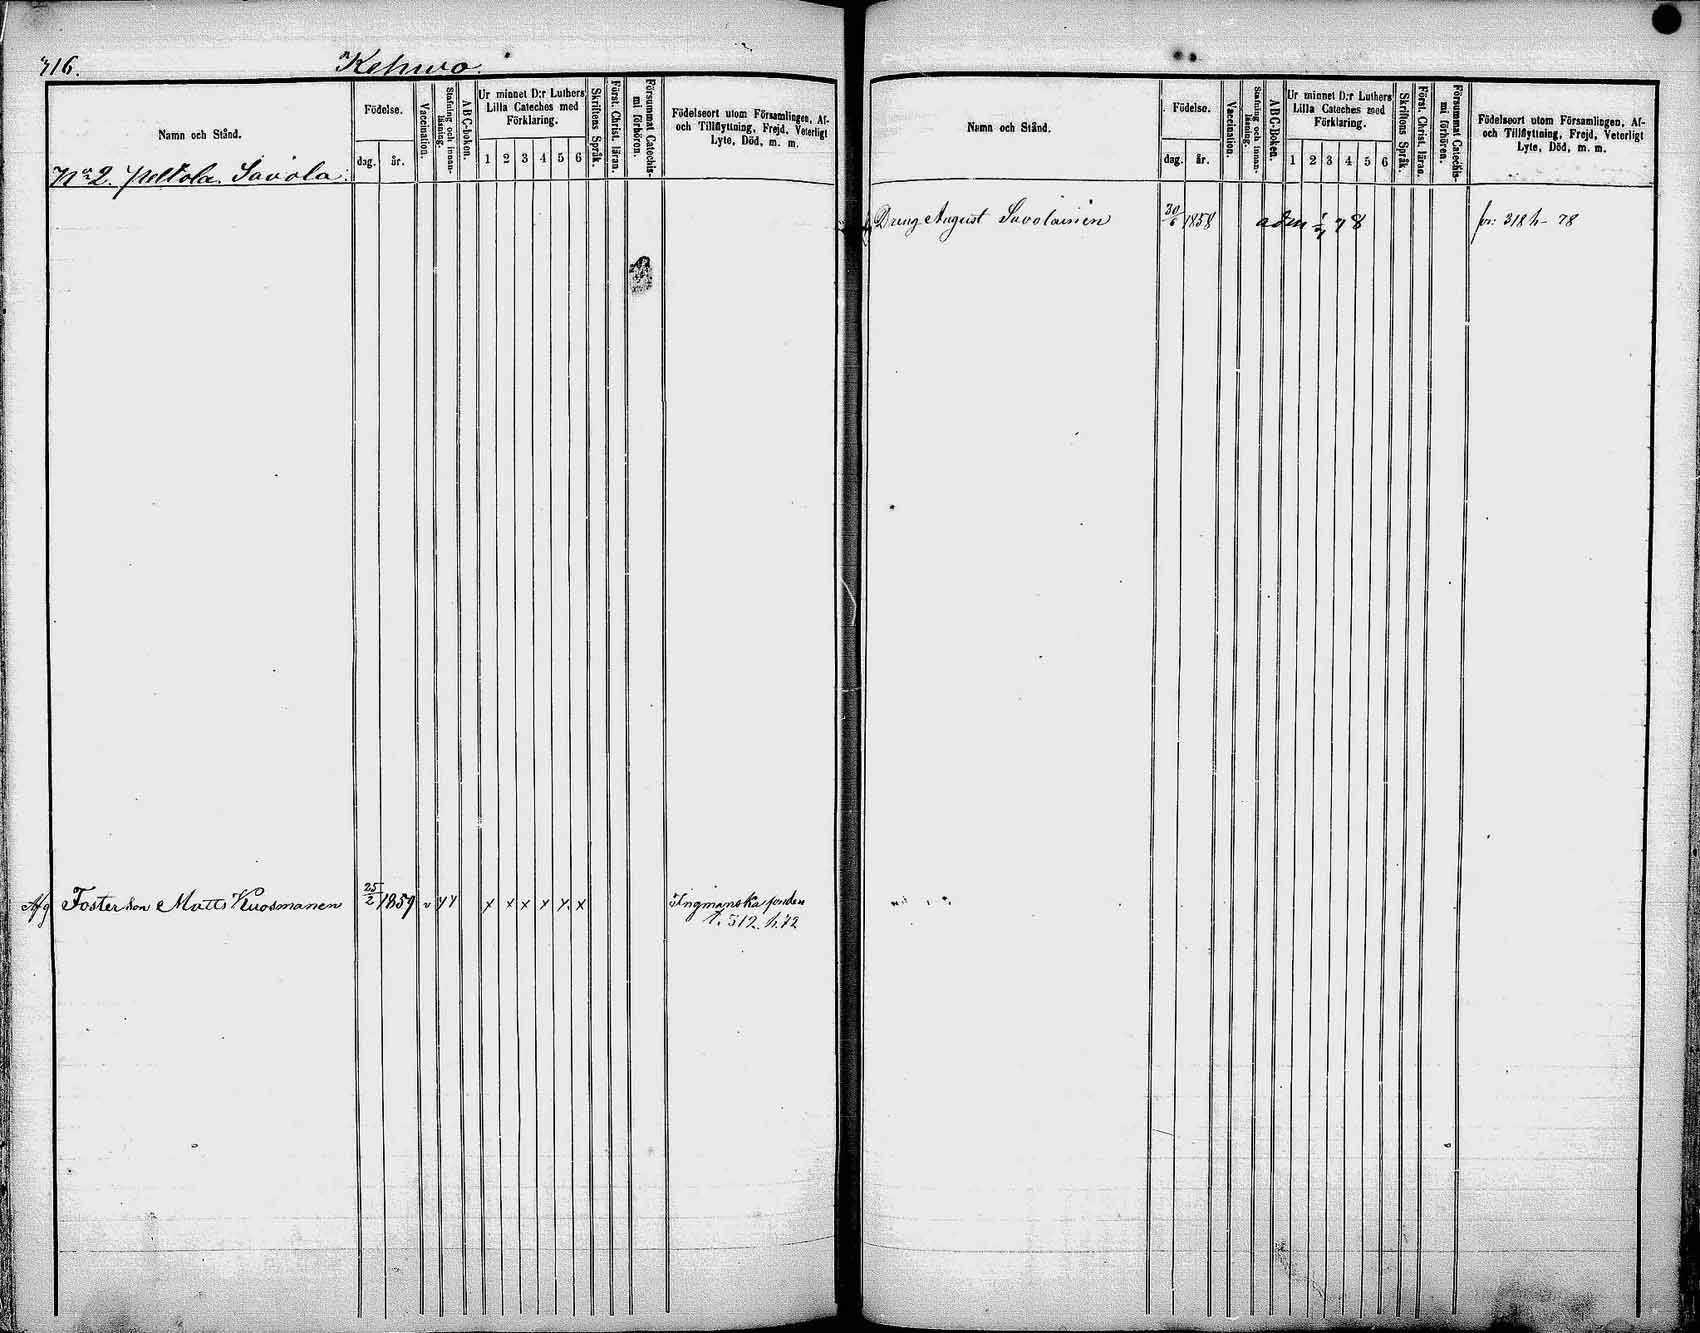 316.
Kehwo.
Namn och Stånd.
Födelse.
dag.
år.
Vaccination.
Stafning och innan-
läsning.
ABC-boken.
Ur minnet D:r Luthers
Lilla Cateches med
Förklaring.
1 2 3 4 5 6
Skriftens Språk.
Först. Christ. läran.
Försummat Catechis-
mi förhören.
Födelseort utom Församlingen, Af-
och Tillflyttning, Frejd, Veterligt
Lyte, Död, m. m.
No 2. Peltola Savola.
Afg Fosterson Matts Kuosmanen 25/2 1859 v x x x x x x x x Ingmanska fonden
f. 312. h. 72
Namn och Stånd.
Födelse.
dag.
år.
Vaccination.
Stafning och innan-
läsning.
ABC-Boken.
Ur minnet D:r Luthers
Lilla Cateches med
Förklaring.
1 2 3 4 5 6
Skriftens Språk.
Först. Christ. läran.
Försummat Catechis-
mi förhören.
Födelseort utom Församlingen, Af-
och Tillflyttning, Frejd, Veterligt
Lyte, Död, m. m.
Dreng August Savolainen 30/6 1858 adm 1/7 78 fr: 318 h- 78